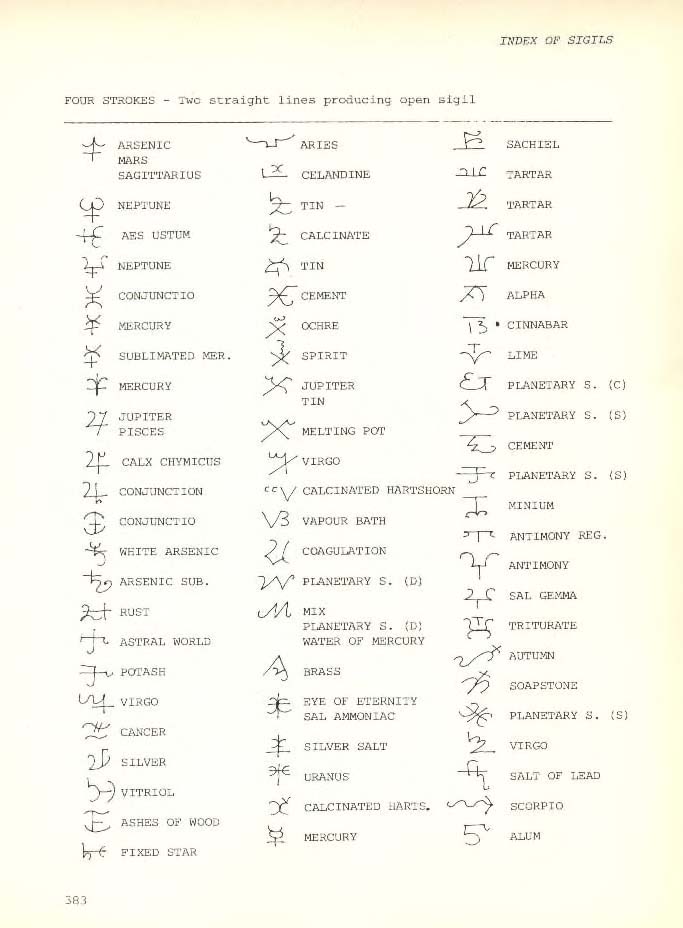 INDEX OF SIGILS
FOUR STROKES - Two straight lines producing open sigil
ARSENIC
MARS
SAGITTARIUS
NEPTUNE
AES USTUM
NEPTUNE
CONJUNCTIO
MERCURY
SUBLIMATED MER.
MERCURY
JUPITER
PISCES
CALX CHYMICUS
CONJUNCTION
CONJUNCTIO
WHITE ARSENIC
ARSENIC SUB.
RUST
ASTRAL WORLD
POTASH
VIRGO
CANCER
SILVER
VITRIOL
ASHES OF WOOD
FIXED STAR
ARIES
CELANDINE
TIN —
CALCINATE
TIN
CEMENT
OCHRE
SPIRIT
JUPITER
TIN
MELTING POT
VIRGO
CALCINATED HARTSHORN
VAPOUR BATH
COAGULATION
PLANETARY S. (D)
MIX
PLANETARY S. (D)
WATER OF MERCURY
BRASS
EYE OF ETERNITY
SAL AMMONIAC
SILVER SALT
URANUS
CALCINATED HARTS.
MERCURY
SACHIEL
TARTAR
TARTAR
TARTAR
MERCURY
ALPHA
CINNABAR
LIME
PLANETARY S. (C)
PLANETARY S. (S)
CEMENT
PLANETARY S. (S)
MINIUM
ANTIMONY REG.
ANTIMONY
SAL GEMMA
TRITURATE
AUTUMN
SOAPSTONE
PLANETARY S. (S)
VIRGO
SALT OF LEAD
SCORPIO
ALUM
383